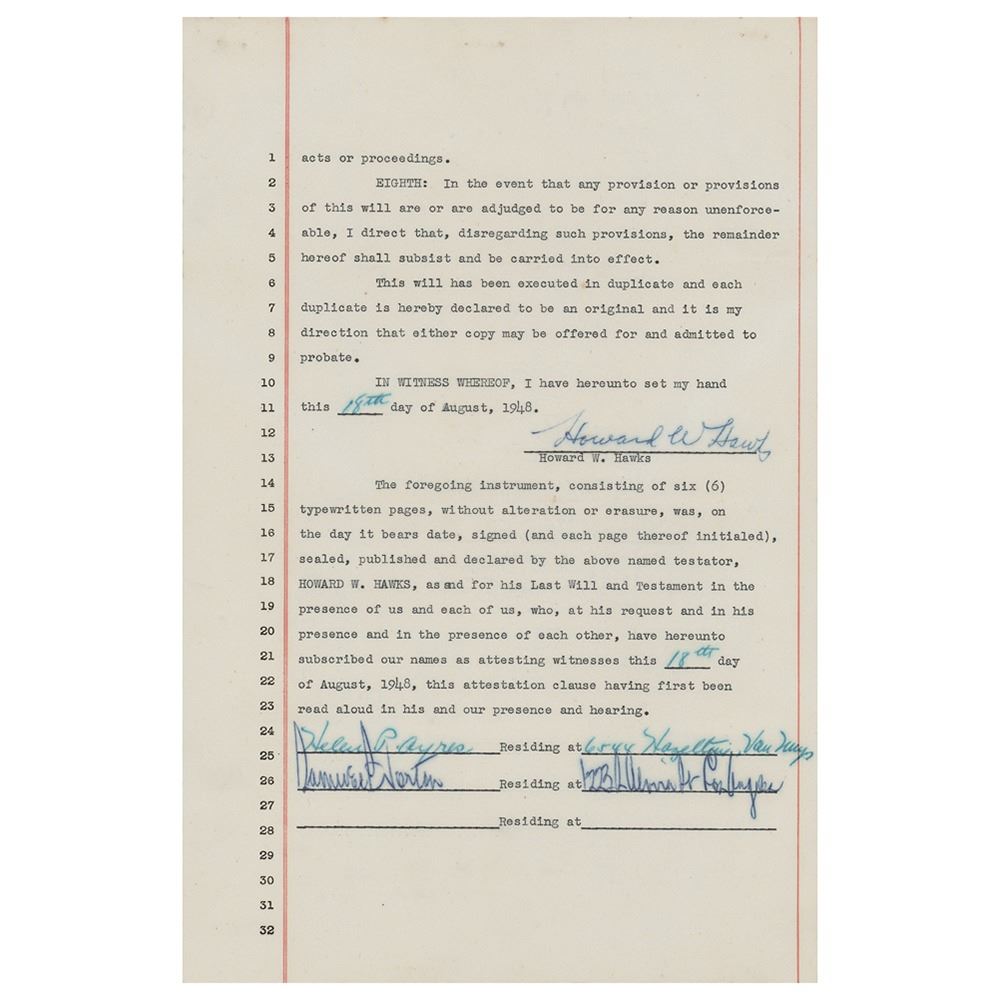 1 acts or proceedings.
2 EIGHTH: In the event that any provision or provisions
3 of this will are or are adjudged to be for any reason unenforce-
4 able, I direct that, disregarding such provisions, the remainder
5 hereof shall subsist and be carried into effect.
6 This will has been executed in duplicate and each
7 duplicate is hereby declared to be an original and it is my
8 direction that either copy may be offered for and admitted to
9 probate.
10 IN WITNESS WHEREOF, I have hereunto set my hand
11 this 18th day of August, 1948.
12 Howard W Hawks
13 Howard W. Hawks
14 The foregoing instrument, consisting of six (6)
15 typewritten pages, without alteration or erasure, was, on
16 the day it bears date, signed (and each page thereof initialed),
17 sealed, published and declared by the above named testator,
18 HOWARD W. HAWKS, as and for his Last Will and Testament in the
19 presence of us and each of us, who, at his request and in his
20 presence and in the presence of each other, have hereunto
21 subscribed our names as attesting witnesses this 18th day
22 of August, 1948, this attestation clause having first been
23 read aloud in his and our presence and hearing.
24
25 Helen R. Ayres Residing at 6544 Van Nuys
26 Residing at Los Angeles
27
28 Residing at
29
30
31
32